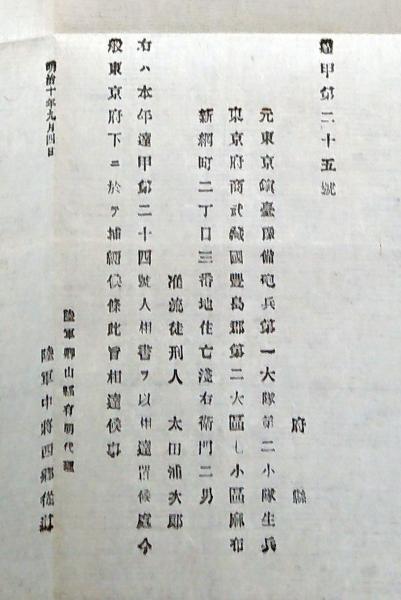 達甲第二十五號
府縣
元東京鎭臺豫備砲兵第一大隊第二小隊生兵
東京府商武藏國豐島郡第二大區七小區麻布
新網町二丁目三番地住亡淺右衛門二男
准流徒刑人 太田浦次郎
右ハ本年達甲第二十四號人相書ヲ以相達置候處今
般東京府下ニ於テ捕縛候條此旨相達候事
明治十年九月四日
陸軍卿山縣有朋代理
陸軍中將西鄕從道